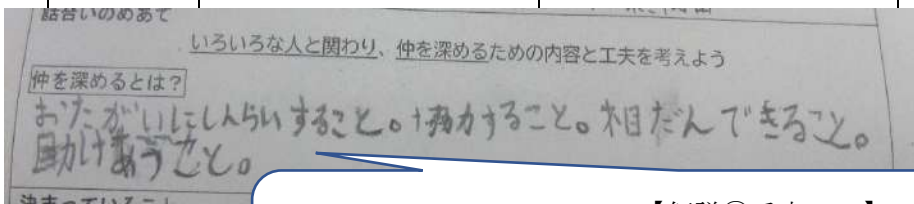 話合いのめあて
いろいろな人と関わり、仲を深めるための内容と工夫を考えよう
仲を深めるとは?
おたがいにしんらいすること。協力すること。相だんできること。
助けあうこと。